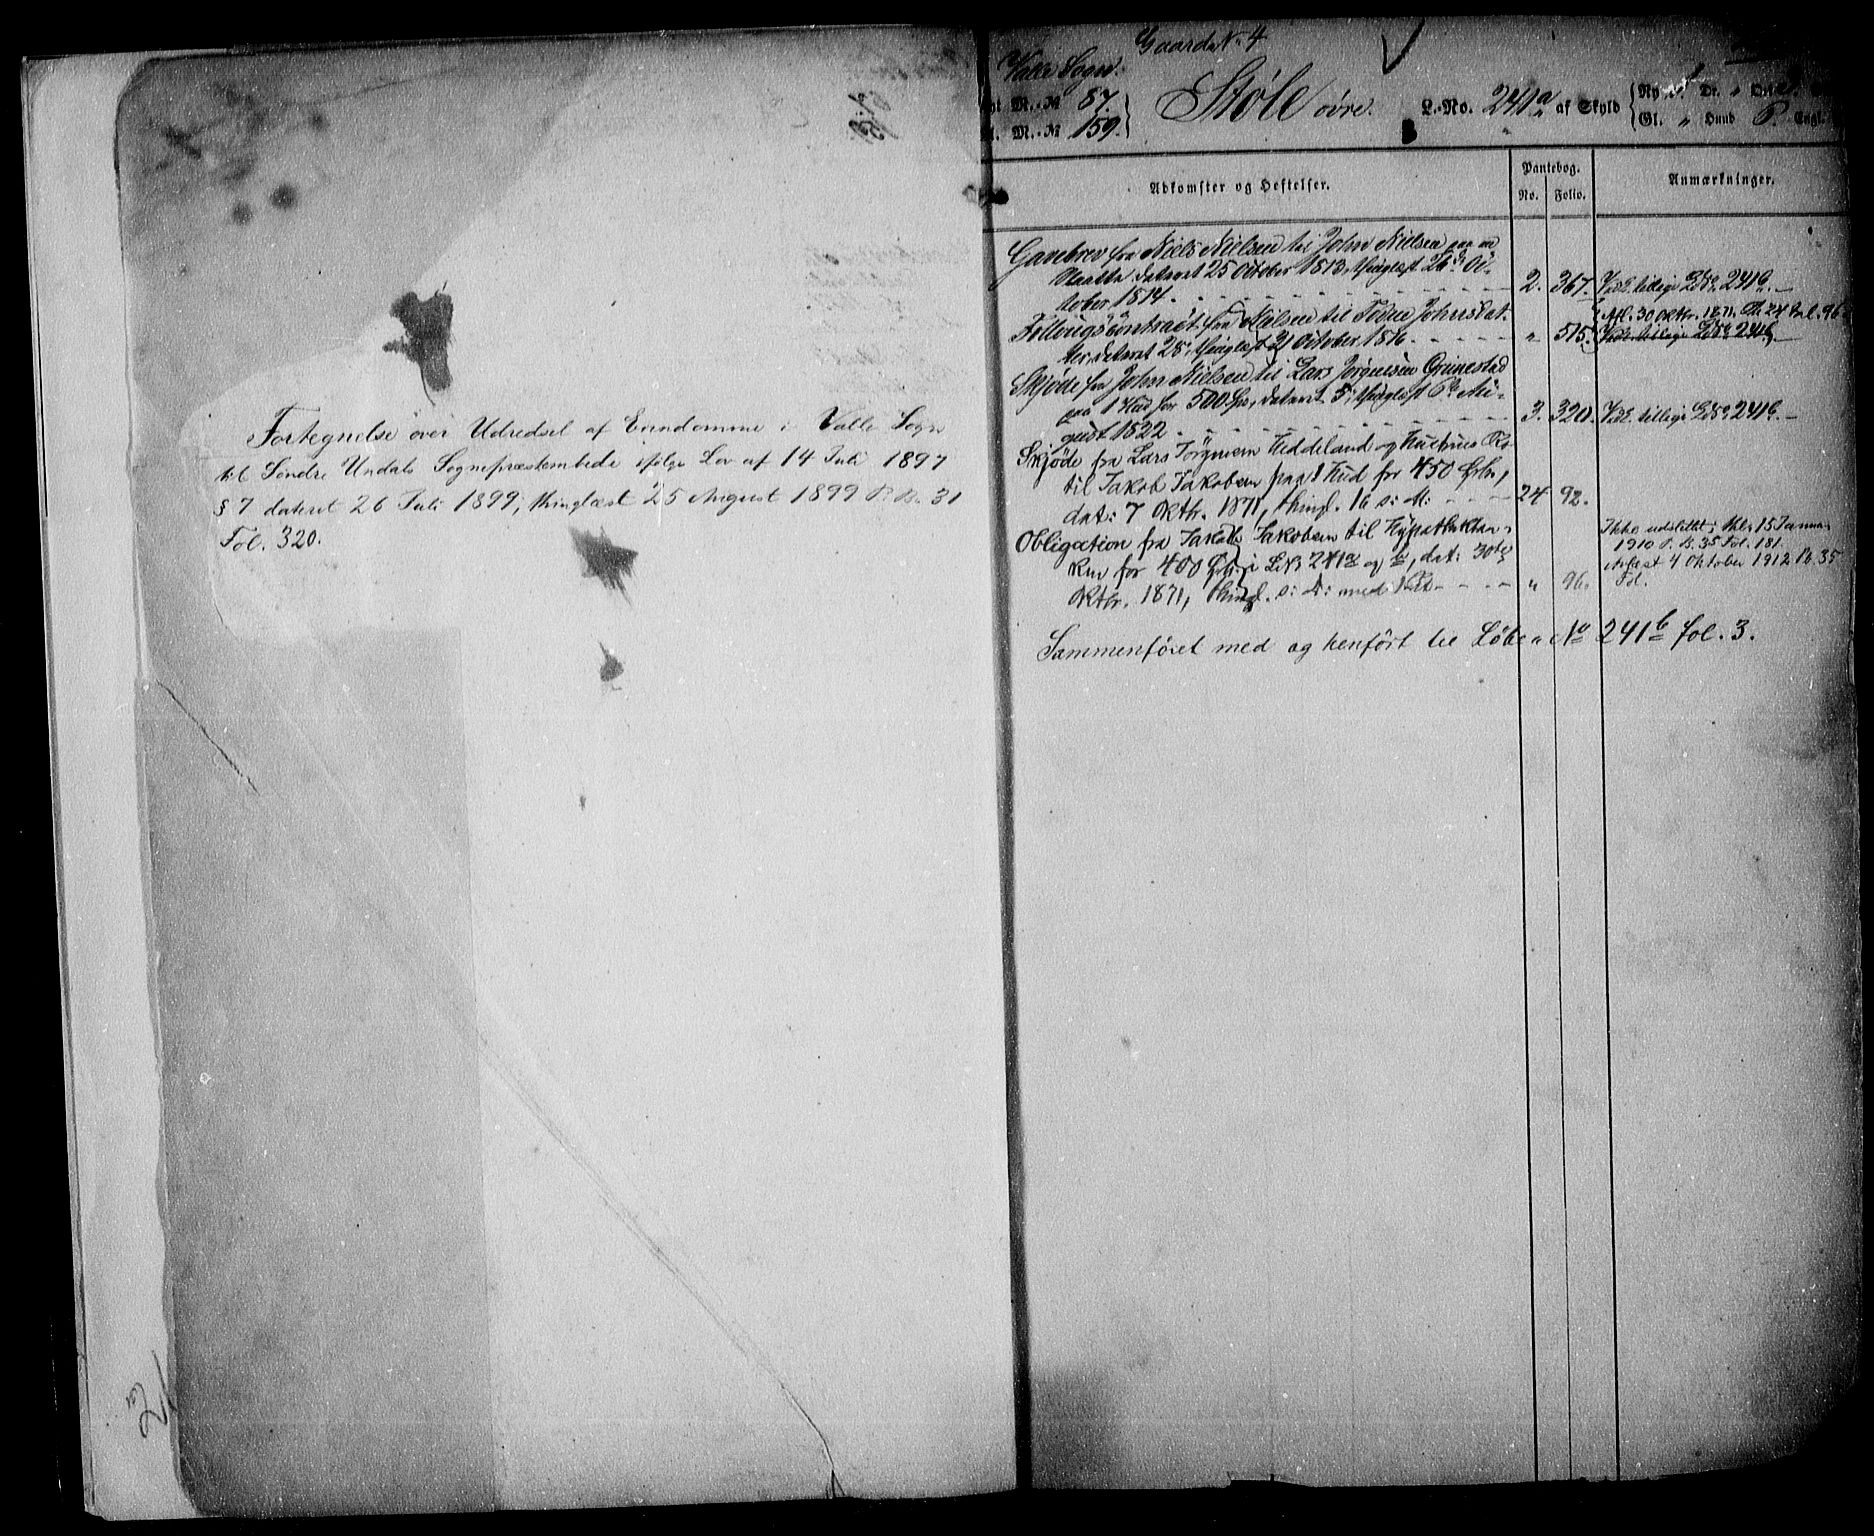 Fortegnelse over Udredsel af Eiendomme i Valle Sogn
til Søndre Undals Sognepræstembede ifølge Lov af 14 Juli 1897
§ 7 dateret 26 Juli 1899, thinglæst 25 August 1899 P. B. 31
Fol. 320.
Gaards N. 4
Valle Sogn.
M.-№ 87.
M.-№ 159.
Støle øvre.
L.-No. 241a af Skyld
Ny Dr. Ort
Gl. " Hund 6. Engl.
Adkomster og Heftelser.
Pantebog.
No. Folio.
Anmærkninger.
Gavebrev fra Niels Nielsen til John Nielsen paa
dateret 25 October 1813, thinglæst 26 Oc-
tober 1814. 2. 367. Vide tillige L№ 241b.
Afl. 30 Oktbr. 1871. Pb. 24 Fol. 96
Føllougscontract fra Nielsen til Johnsdat-
ter, dateret 28, thinglæst 31 October 1816. " 515. Vide tillige L№ 241b
Skjøde fra John Nielsen til Lars Jørgensen Grimestad
paa 1 Hud for 500 Spd, dateret 5, thinglæst 6te Au-
gust 1822. 3. 320. Vide tillige L№ 241b
Skjøde fra Lars Jørgensen Heddeland og Hustrues
til Jakob Jakobsen paa 1 Hud for 450 Spdlr,
dat: 7 Oktbr. 1871, thingl. 16 s: M: 24 92.
Obligation fra Jakob Jakobsen til Hypothekban-
ken for 400 Spdlr i L№ 241a og b, dat: 30te
Oktbr. 1871, thingl. s: D: med 1 Pr. " 96.
Ikke udslettet; thl. 15 Januar
1910 P. B. 35 Fol. 181.
Avlæst 4 Oktober 1912 Pb. 35
Fol.
Sammenføiet med og henført til Løbe No 241b fol. 3.